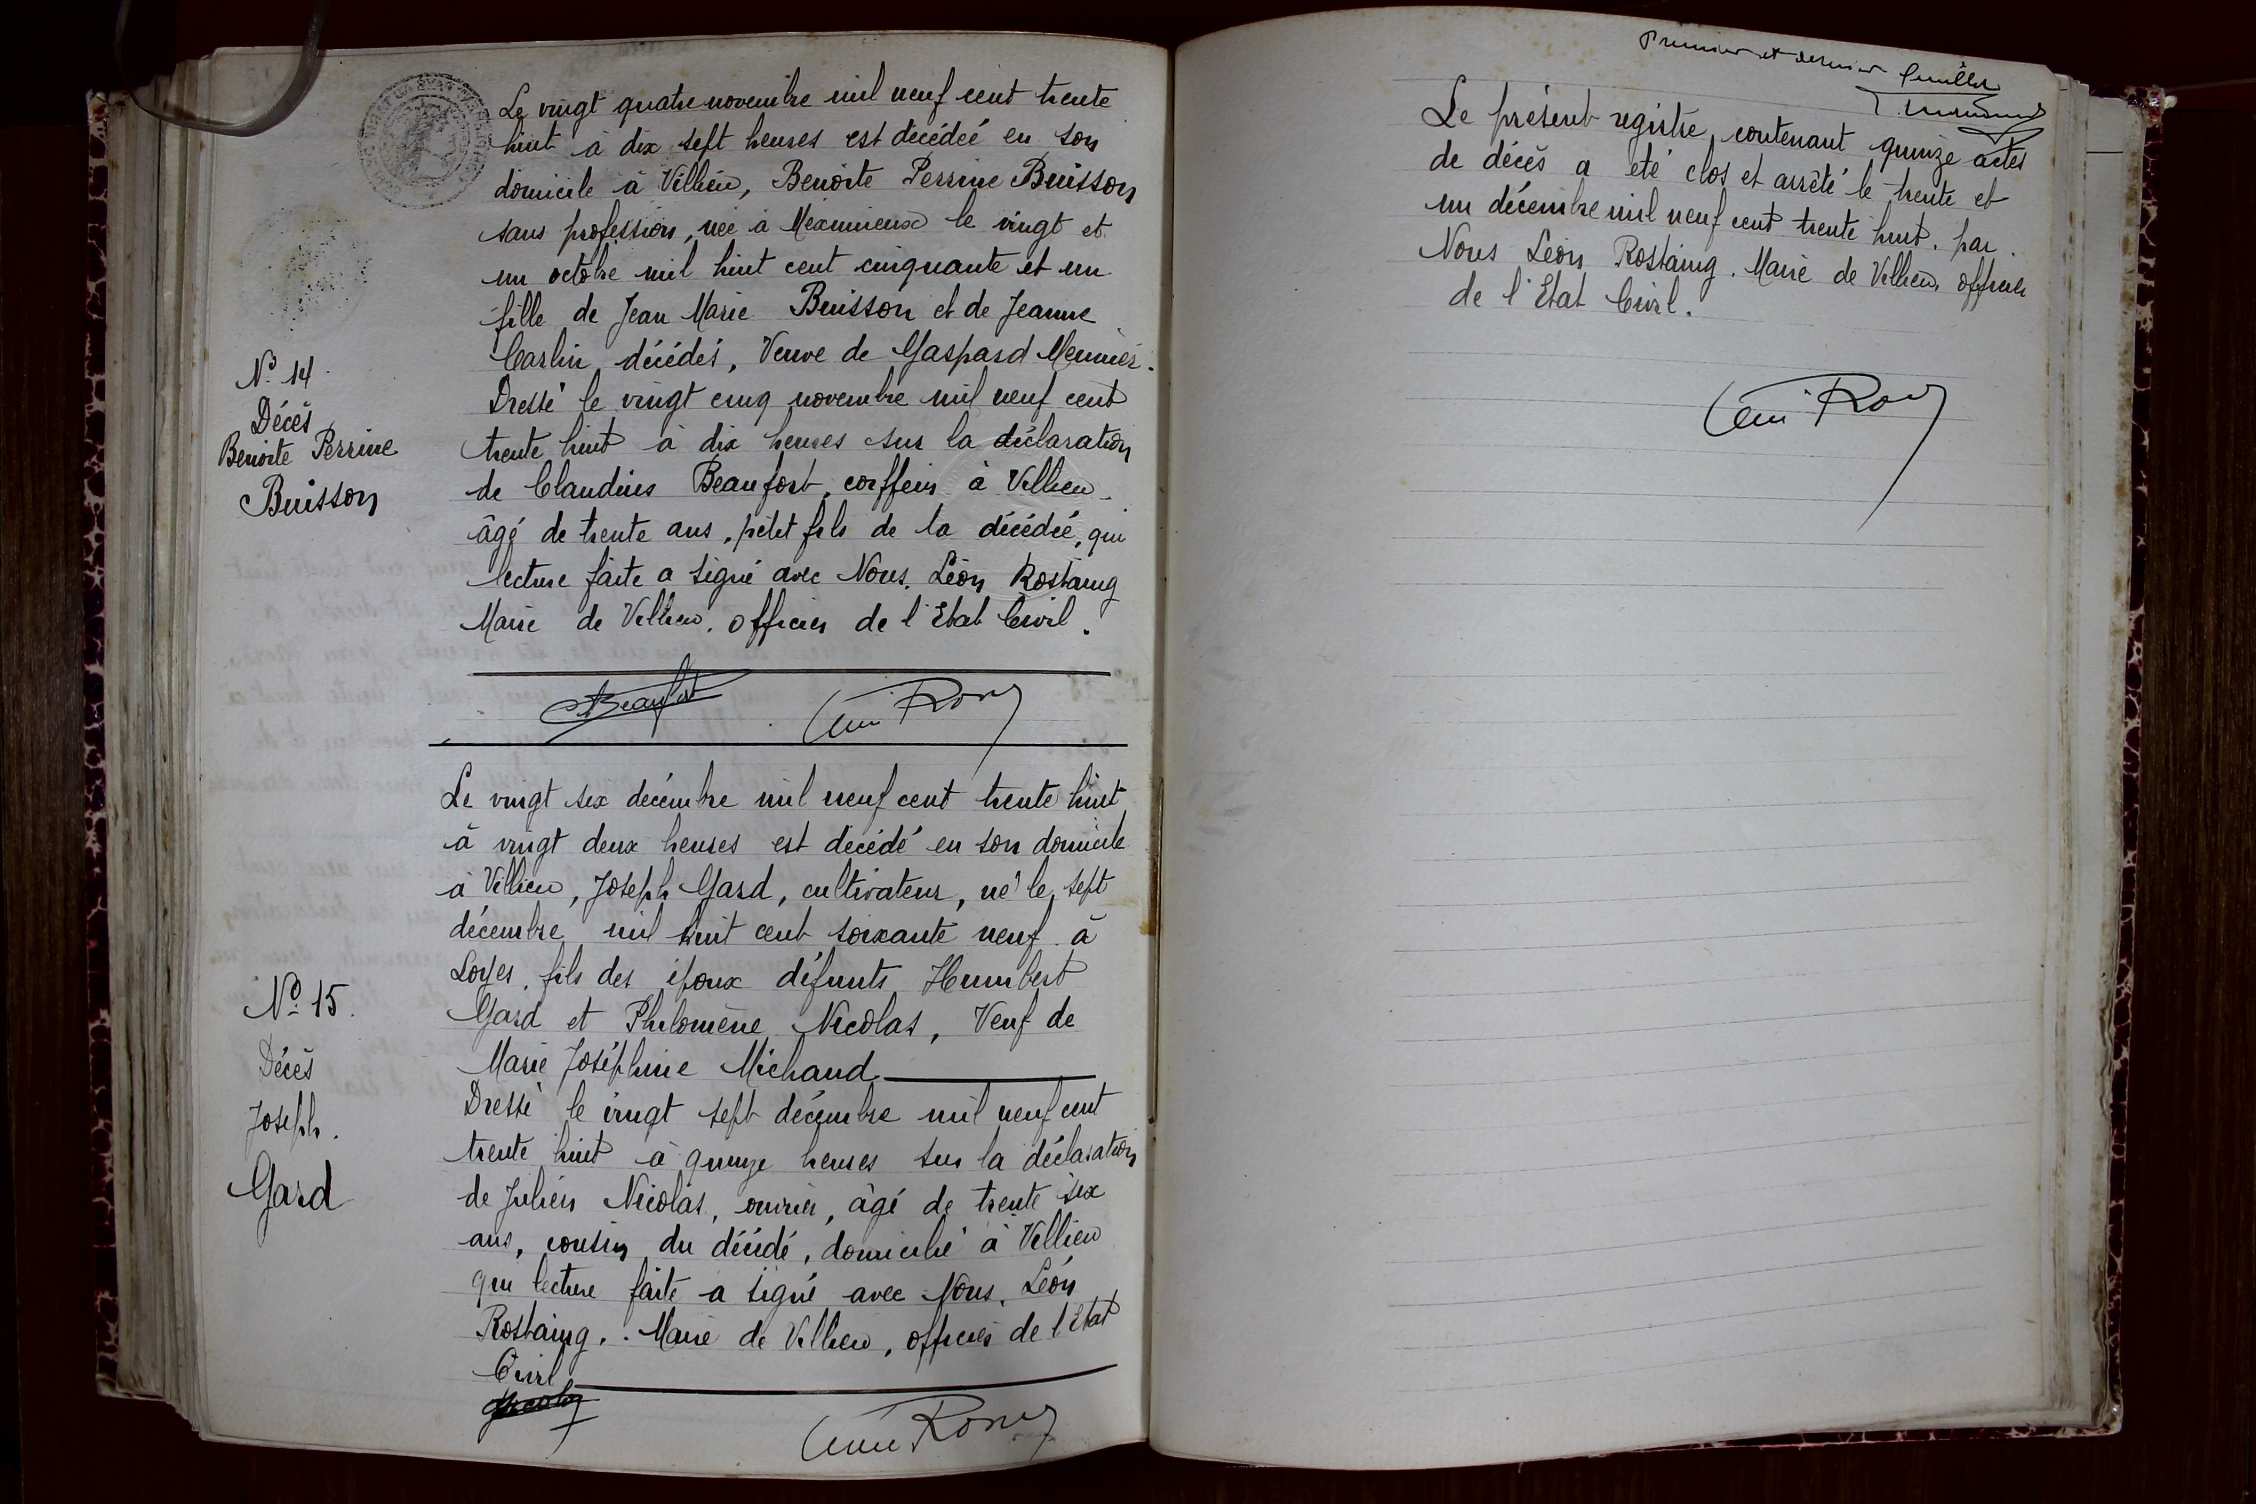 Le vingt quatre novembre mil neuf cent trente
huit à dix sept heures est décédée en son
domicile à Villieu, Benoite Perrine Buisson
sans profession, née à Meximieux le vingt et
un octobre mil huit cent cinquante et un
fille de Jean Marie Buisson et de Jeanne
Carlin décédés, Veuve de Gaspard Meunier.
Dressé le vingt cinq novembre mil neuf cent
trente huit à dix heures sur la déclaration
de Claudius Beaufort, coiffeur à Villieu
âgé de trente ans, petit fils de la décédée, qui
lecture faite a signé avec Nous, Léon Rostaing
Maire de Villieu, officier de l'Etat Civil.
N° 14
Décès
Benoite Perrine
Buisson
Beaufort
Le vingt six décembre mil neuf cent trente huit
à vingt deux heures est décédé en son domicile
à Villieu, Joseph Gard, cultivateur, né le sept
décembre mil huit cent soixante neuf à
Loyes, fils des époux défunts Humbert
Gard et Philomène Nicolas, Veuf de
Marie Joséphine Michaud
Dressé le vingt sept décembre mil neuf cent
trente huit à quinze heures sur la déclaration
de Julien Nicolas, ouvrier, âgé de trente six
ans, cousin du décédé, domicilié à Villieu
qui lecture faite a signé avec Nous, Léon
Rostaing, Maire de Villieu, officier de l'Etat
Civil
N° 15.
Décès
Joseph.
Gard
Nicolas
Premier et dernier feuillet
Le présent registre, contenant quinze actes
de décès a été clos et arrêté le trente et
un décembre mil neuf cent trente huit, par
Nous Léon Rostaing, Maire de Villieu, officier
de l'Etat Civil.